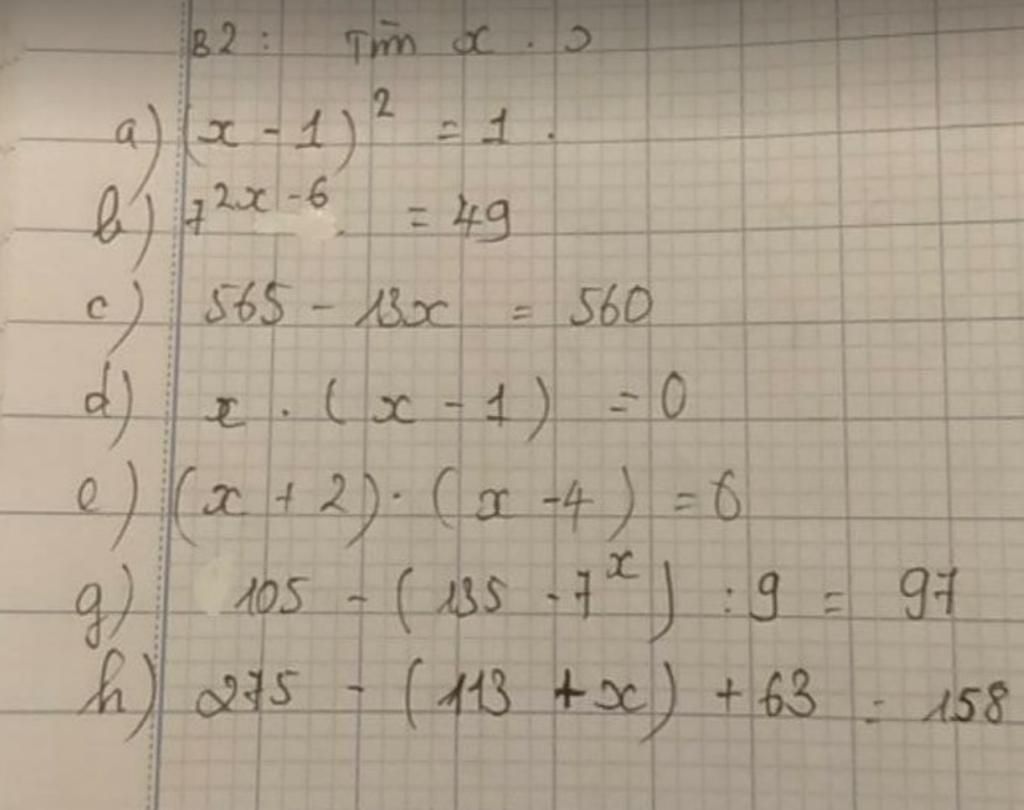 B2: Tìm x.
a) (x - 1)² = 1.
b) 7^{2x - 6} = 49
c) 565 - 13x = 560
d) x . (x - 1) = 0
e) (x + 2) . (x - 4) = 6
g) 105 - (135 - 7^x) : 9 = 97
h) 275 - (113 + x) + 63 = 158